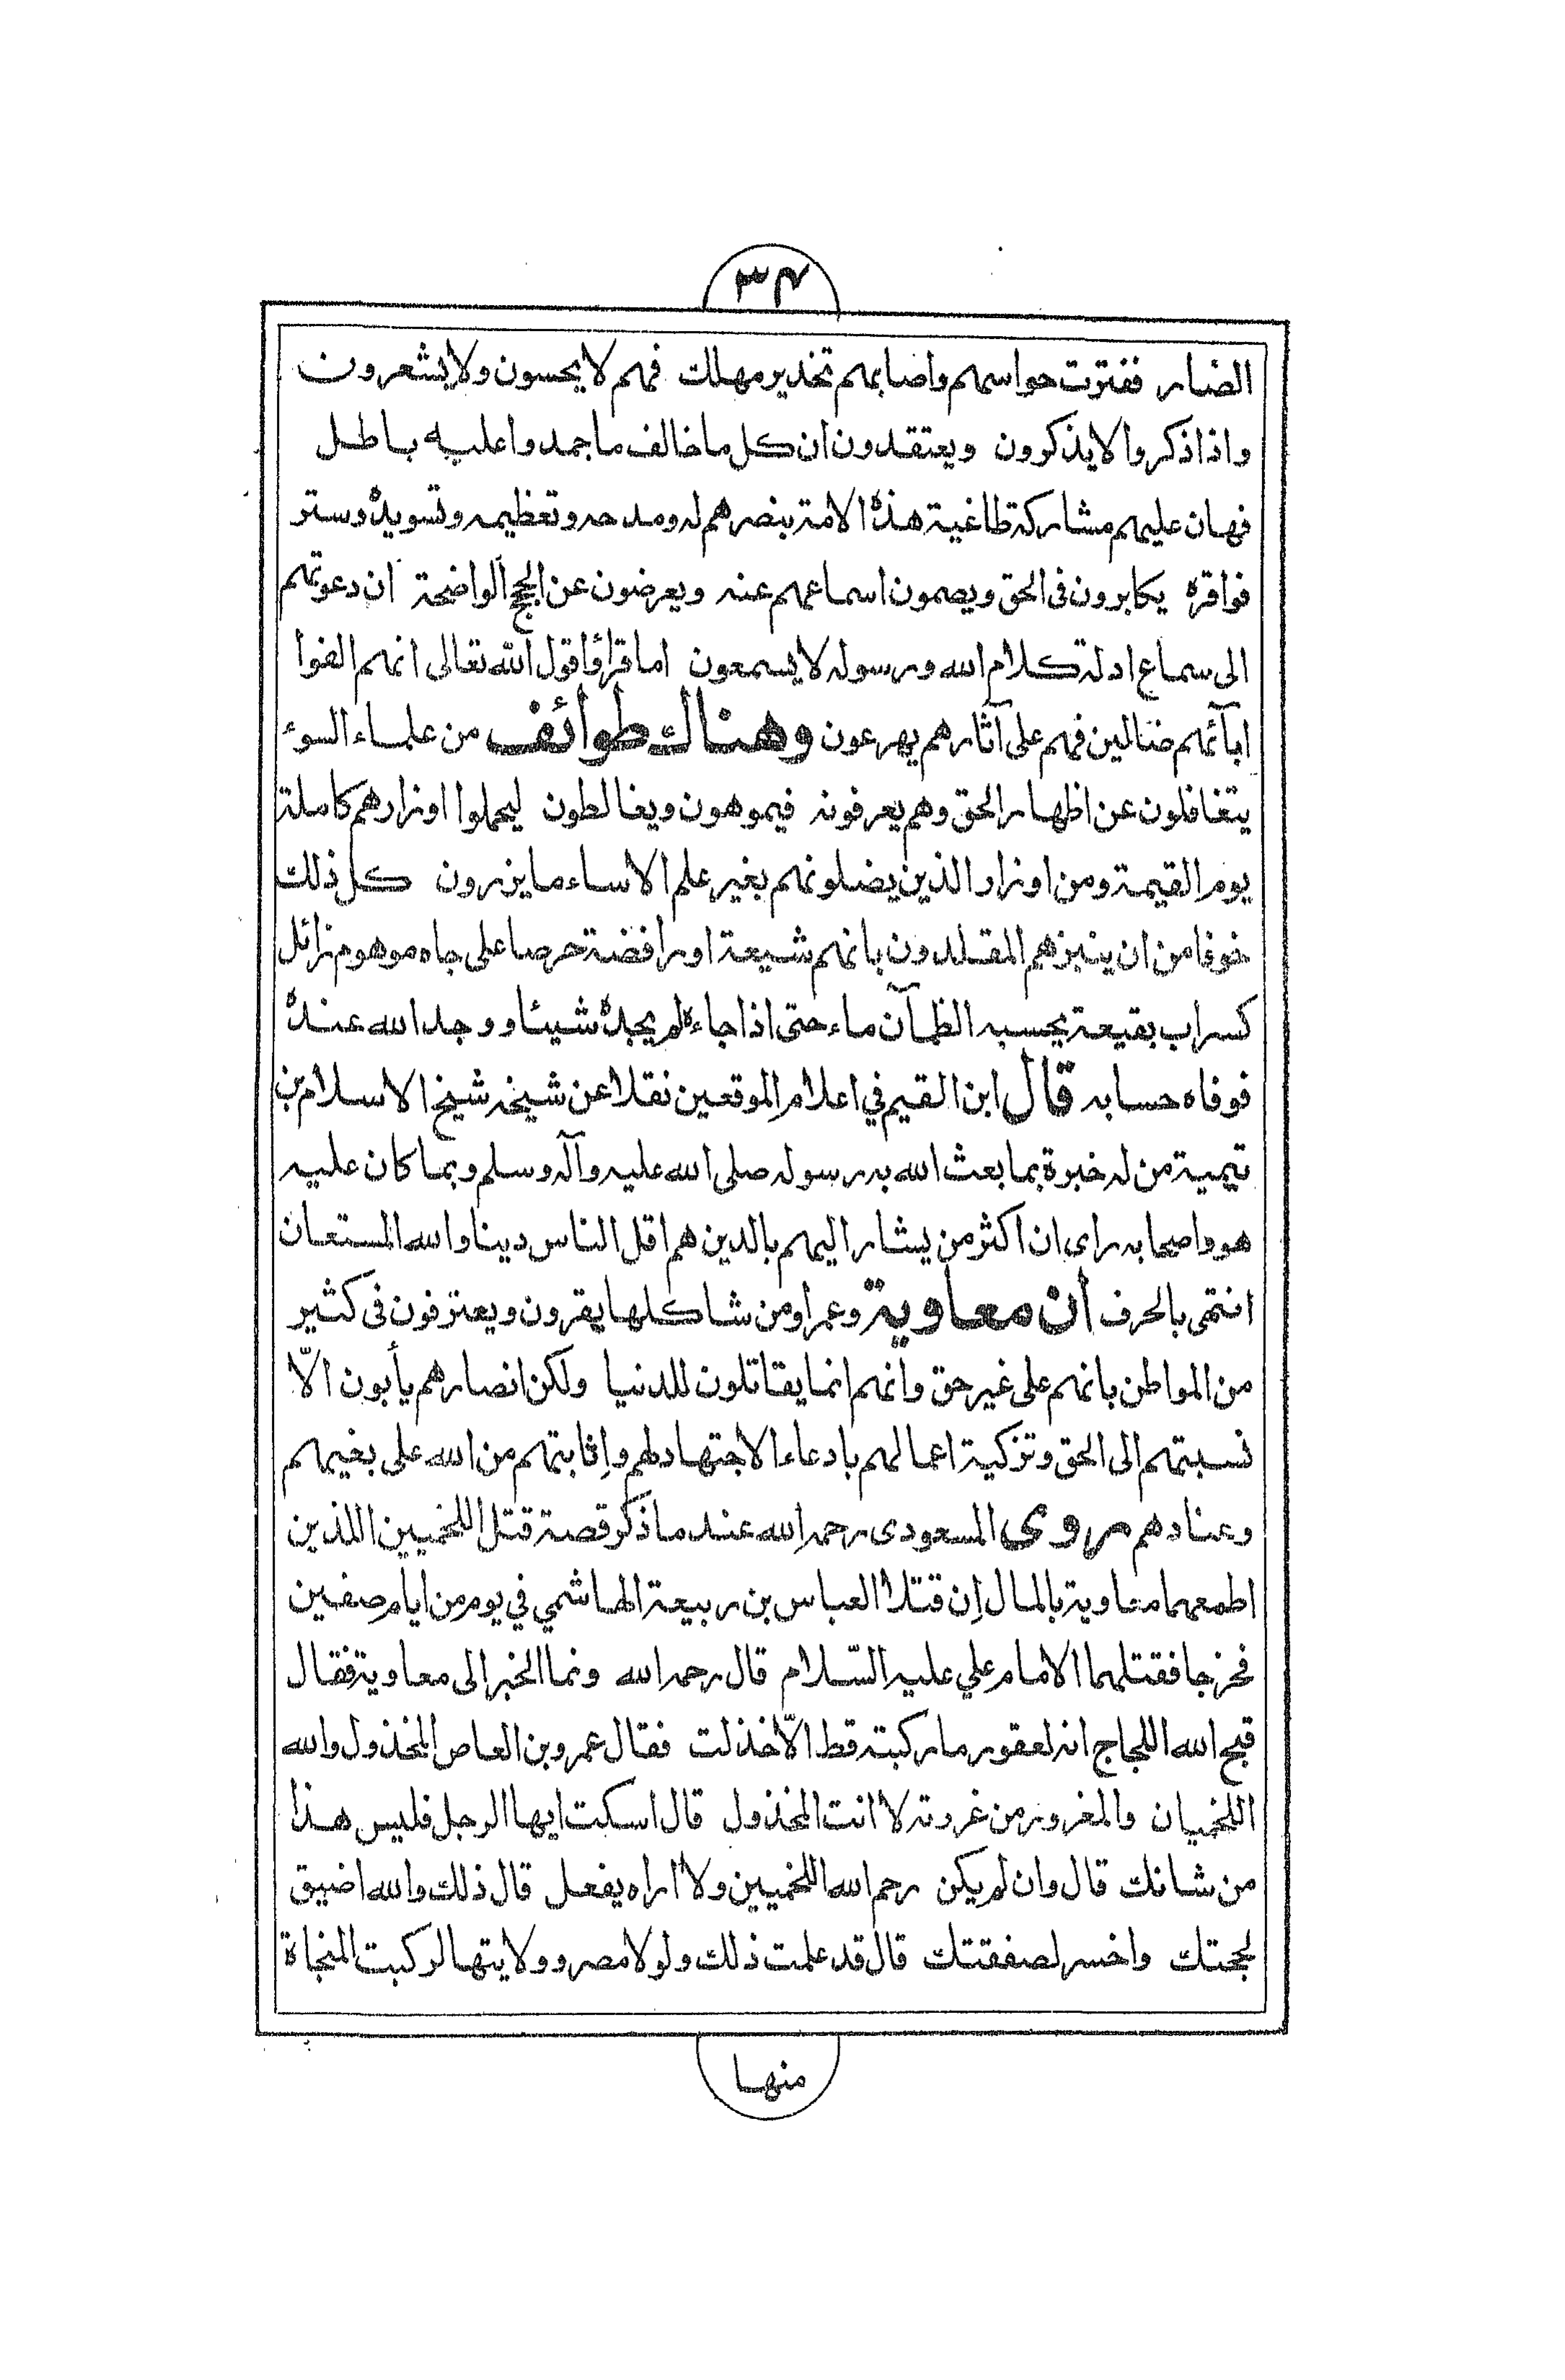 ٣٤
الضار ففترت حواسهم واصابهم تخدير مهلك فهم لا يحسون ولا يشعرون
واذا ذكروا لا يذكرون ويعتقدون ان كل ما خالف ما جمدوا عليه باطل
فهان عليهم مشاركة طاغية هذه الامة بنصرهم له ومدحه وتعظيمه وتسويده وستر
فواقره يكابرون فى الحق ويصمون اسماعهم عنه ويعرضون عن الحجج الواضحة ان دعوتهم
الى سماع ادلة كلام الله ورسوله لا يسمعون اما قرأوا قول الله تعالى انهم الفوا
ابآئهم ضالين فهم على آثارهم يهرعون وهناك طوائف من علماء السوء
يتغافلون عن اظهار الحق وهم يعرفونه فيموهون ويغالطون ليحملوا اوزارهم كاملة
يوم القيمة ومن اوزار الذين يضلونهم بغير علم الا ساء ما يزرون كل ذلك
خوفا من ان ينبزهم المقلدون بانهم شيعة او رافضة حرصا على جاه موهوم زائل
كسراب بقيعة يحسبه الظمآن ماء حتى اذا جاءه لم يجده شيئا ووجد الله عنده
فوفاه حسابه قال ابن القيم في اعلام الموقعين نقلا عن شيخه شيخ الاسلام بن
تيمية من له خبرة بما بعث الله به رسوله صلى الله عليه وآله وسلم وبما كان عليه
هو واصحابه راى ان اكثر من يشار اليهم بالدين هم اقل الناس دينا والله المستعان
انتهى بالحرف أن معاوية وعمرا ومن شاكلها يقرون ويعترفون فى كثير
من المواطن بانهم على غير حق وانهم انما يقاتلون للدنيا ولكن انصارهم يأبون الّا
نسبتهم الى الحق وتزكية اعمالهم بادعاء الاجتهاد لهم واثابتهم من الله على بغيهم
وعنادهم روى المسعودى رحمه الله عند ما ذكر قصة قتل اللخميين اللذين
اطمعهما معاوية بالمال إن قتلا العباس بن ربيعة الهاشمي في يوم من ايام صفين
فخرجا فقتلهما الامام علي عليه السّلام قال رحمه الله ونما الخبر الى معاوية فقال
قبح الله اللجاج انه لعقور ما ركبته قط الّا خذلت فقال عمرو بن العاص المخذول والله
اللخميان والمغرور من غررته لا انت المخذول قال اسكت ايها الرجل فليس هذا
من شانك قال وان لم يكن رحم الله اللخميين ولا اراه يفعل قال ذلك والله اضيق
لحجتك واخسر لصفقتك قال قد علمت ذلك ولولا مصر وولايتها لركبت المنجاة
منها